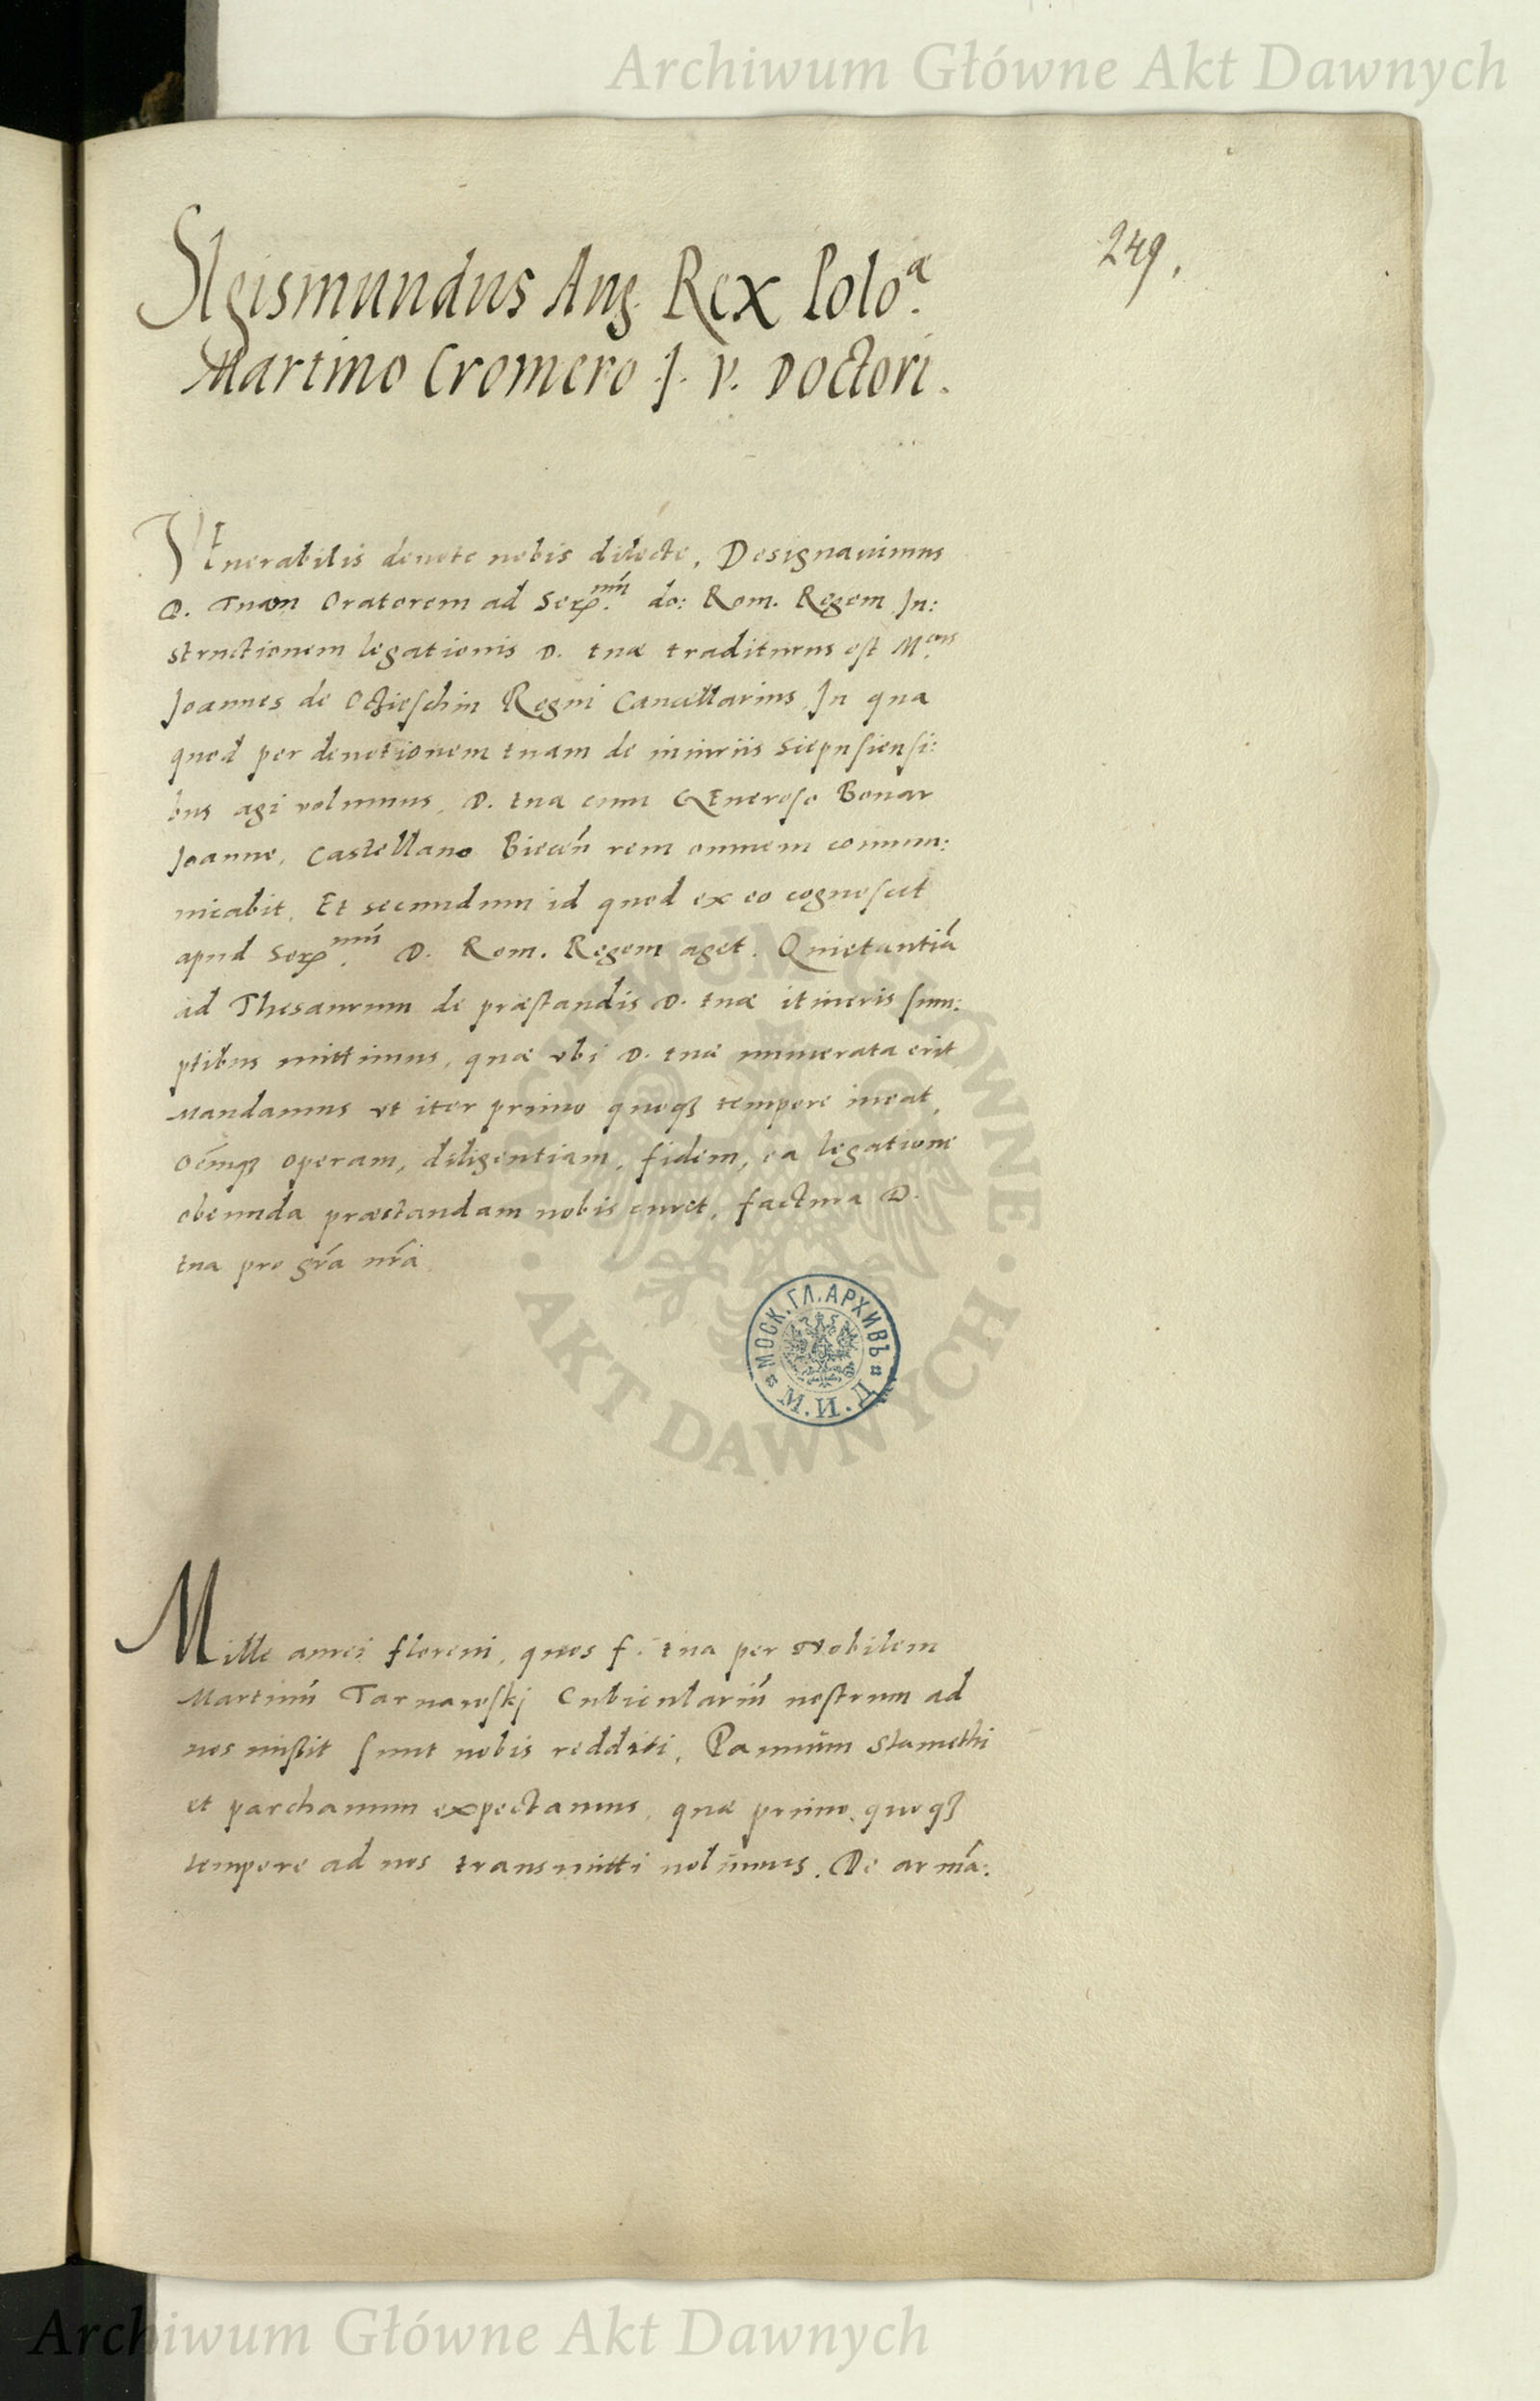 Archiwum Główne Akt Dawnych
249.
SIgismundus Aug. Rex Polo.ᵃ
Martino Cromero J. V. Doctori.
VEnerabilis deuote nobis dilecte, Designauimus
D. Tuam Oratorem ad Ser.ᵐᵘ̃ do: Rom. Regem In:
structionem legationis D. tuæ traditurus est M.ᶜᵘˢ
Joannes de Oczieschin Regni Cancellarius. In qua
quod per deuotionem tuam de iniuriis Siepusiensi:
bus agi volumus, D. tua cum GEneroso Bonar
Joanne, Castellano Biecen̄ rem omnem commu:
nicabit. Et secundum id quod ex eo cognoscet
apud Ser.ᵐᵘ̃ D. Rom. Regem aget. Quietantiā
ad Thesaurum de præstandis D. tuæ itineris sum:
ptibus mittimus, quæ vbi D. tuæ numerata erit
Mandamus vt iter primo quoqꝫ tempore ineat,
Oēmqꝫ operam, diligentiam, fidem, ea legatione
obeunda præstandam nobis curet, factura D.
tua pro gr̄a nr̄a
МОСК. ГЛ. АРХИВЪ
М. И. Д.
ARCHIWUM GŁÓWNE · AKT DAWNYCH ·
Mille aurei floreni, quos f. tua per Nobilem
Martinū Tarnawskj Cubiculariū nostrum ad
nos misit sunt nobis redditi. Pannum Stamethi
et parchanum expectamus, quæ primo quoqꝫ
tempore ad nos transmitti uolumus. De armā:
Archiwum Główne Akt Dawnych